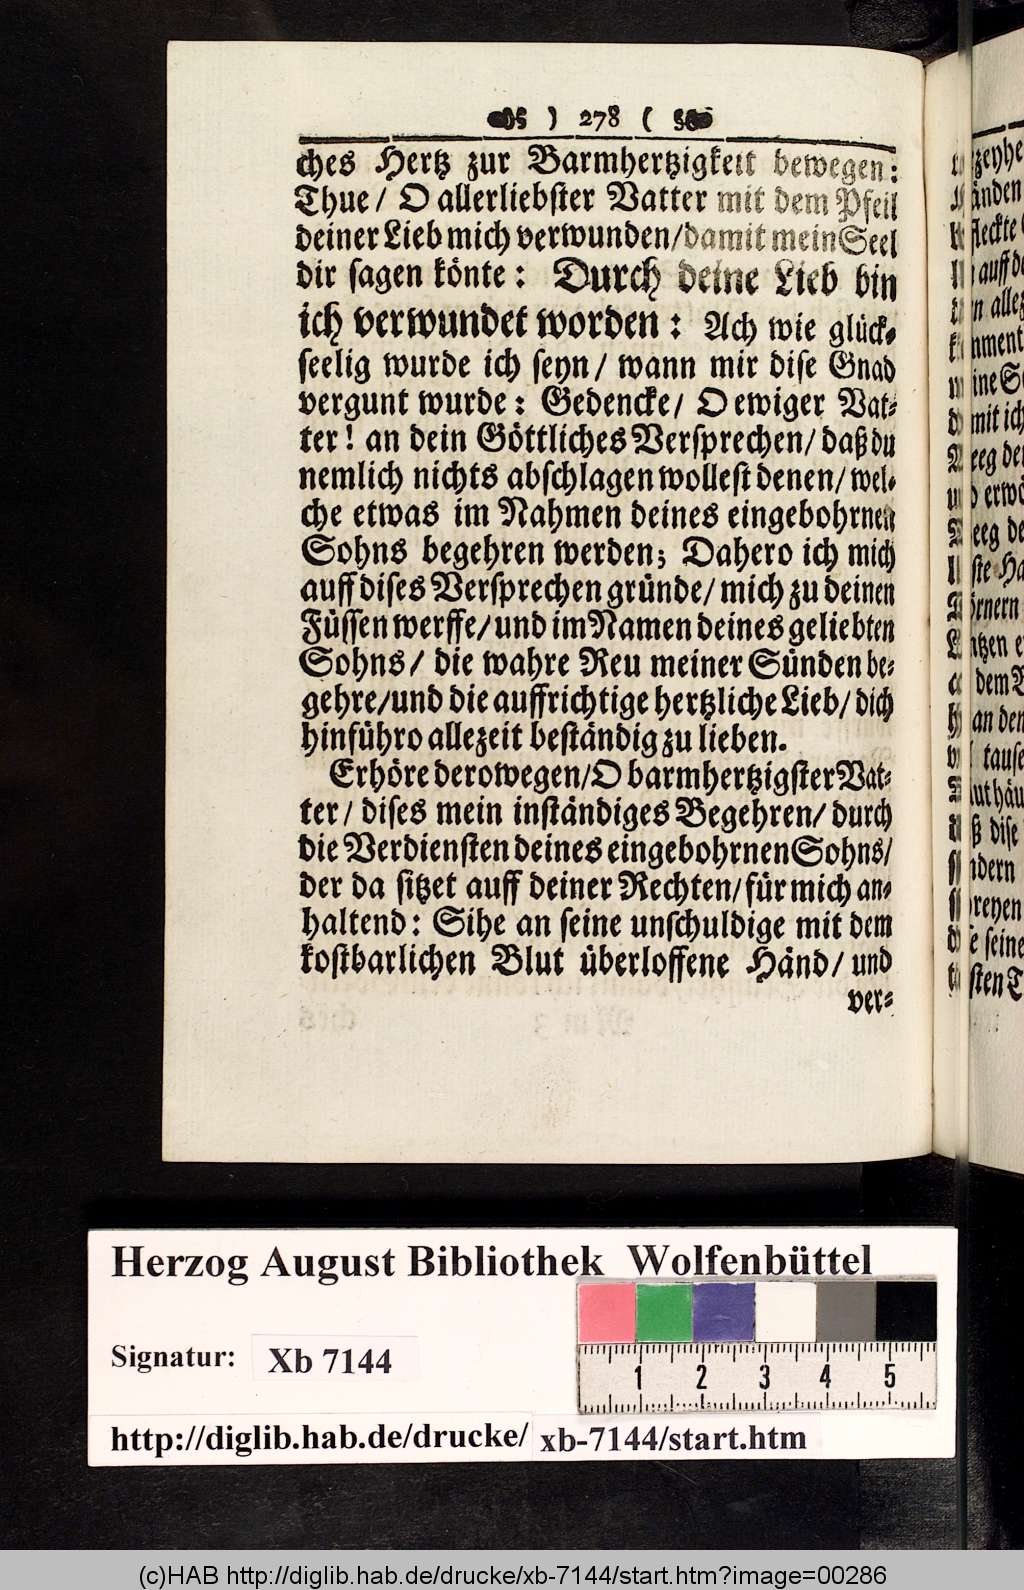 ) 278 (
ches Hertz zur Barmhertzigkeit bewegen:
Thue/ O allerliebster Vatter mit dem Pfeil
deiner Lieb mich verwunden/damit mein Seel
dir sagen könte: Durch deine Lieb bin
ich verwundet worden: Ach wie glück-
seelig wurde ich seyn/ wann mir dise Gnad
vergunt wurde: Gedencke/ O ewiger Vat-
ter! an dein Göttliches Versprechen/ daß du
nemlich nichts abschlagen wollest denen/ wel-
che etwas im Nahmen deines eingebohrnen
Sohns begehren werden; Dahero ich mich
auff dises Versprechen gründe/ mich zu deinen
Füssen werffe/und im Namen deines geliebten
Sohns/ die wahre Reu meiner Sünden be-
gehre/und die auffrichtige hertzliche Lieb/ dich
hinführo allezeit beständig zu lieben.
Erhöre derowegen/O barmhertzigster Vat-
ter/ dises mein inständiges Begehren/ durch
die Verdiensten deines eingebohrnen Sohns/
der da sitzet auff deiner Rechten/ für mich an-
haltend: Sihe an seine unschuldige mit dem
kostbarlichen Blut überloffene Händ/ und
ver-
Herzog August Bibliothek Wolfenbüttel
Signatur: Xb 7144
1 2 3 4 5
http://diglib.hab.de/drucke/ xb-7144/start.htm
(c)HAB http://diglib.hab.de/drucke/xb-7144/start.htm?image=00286